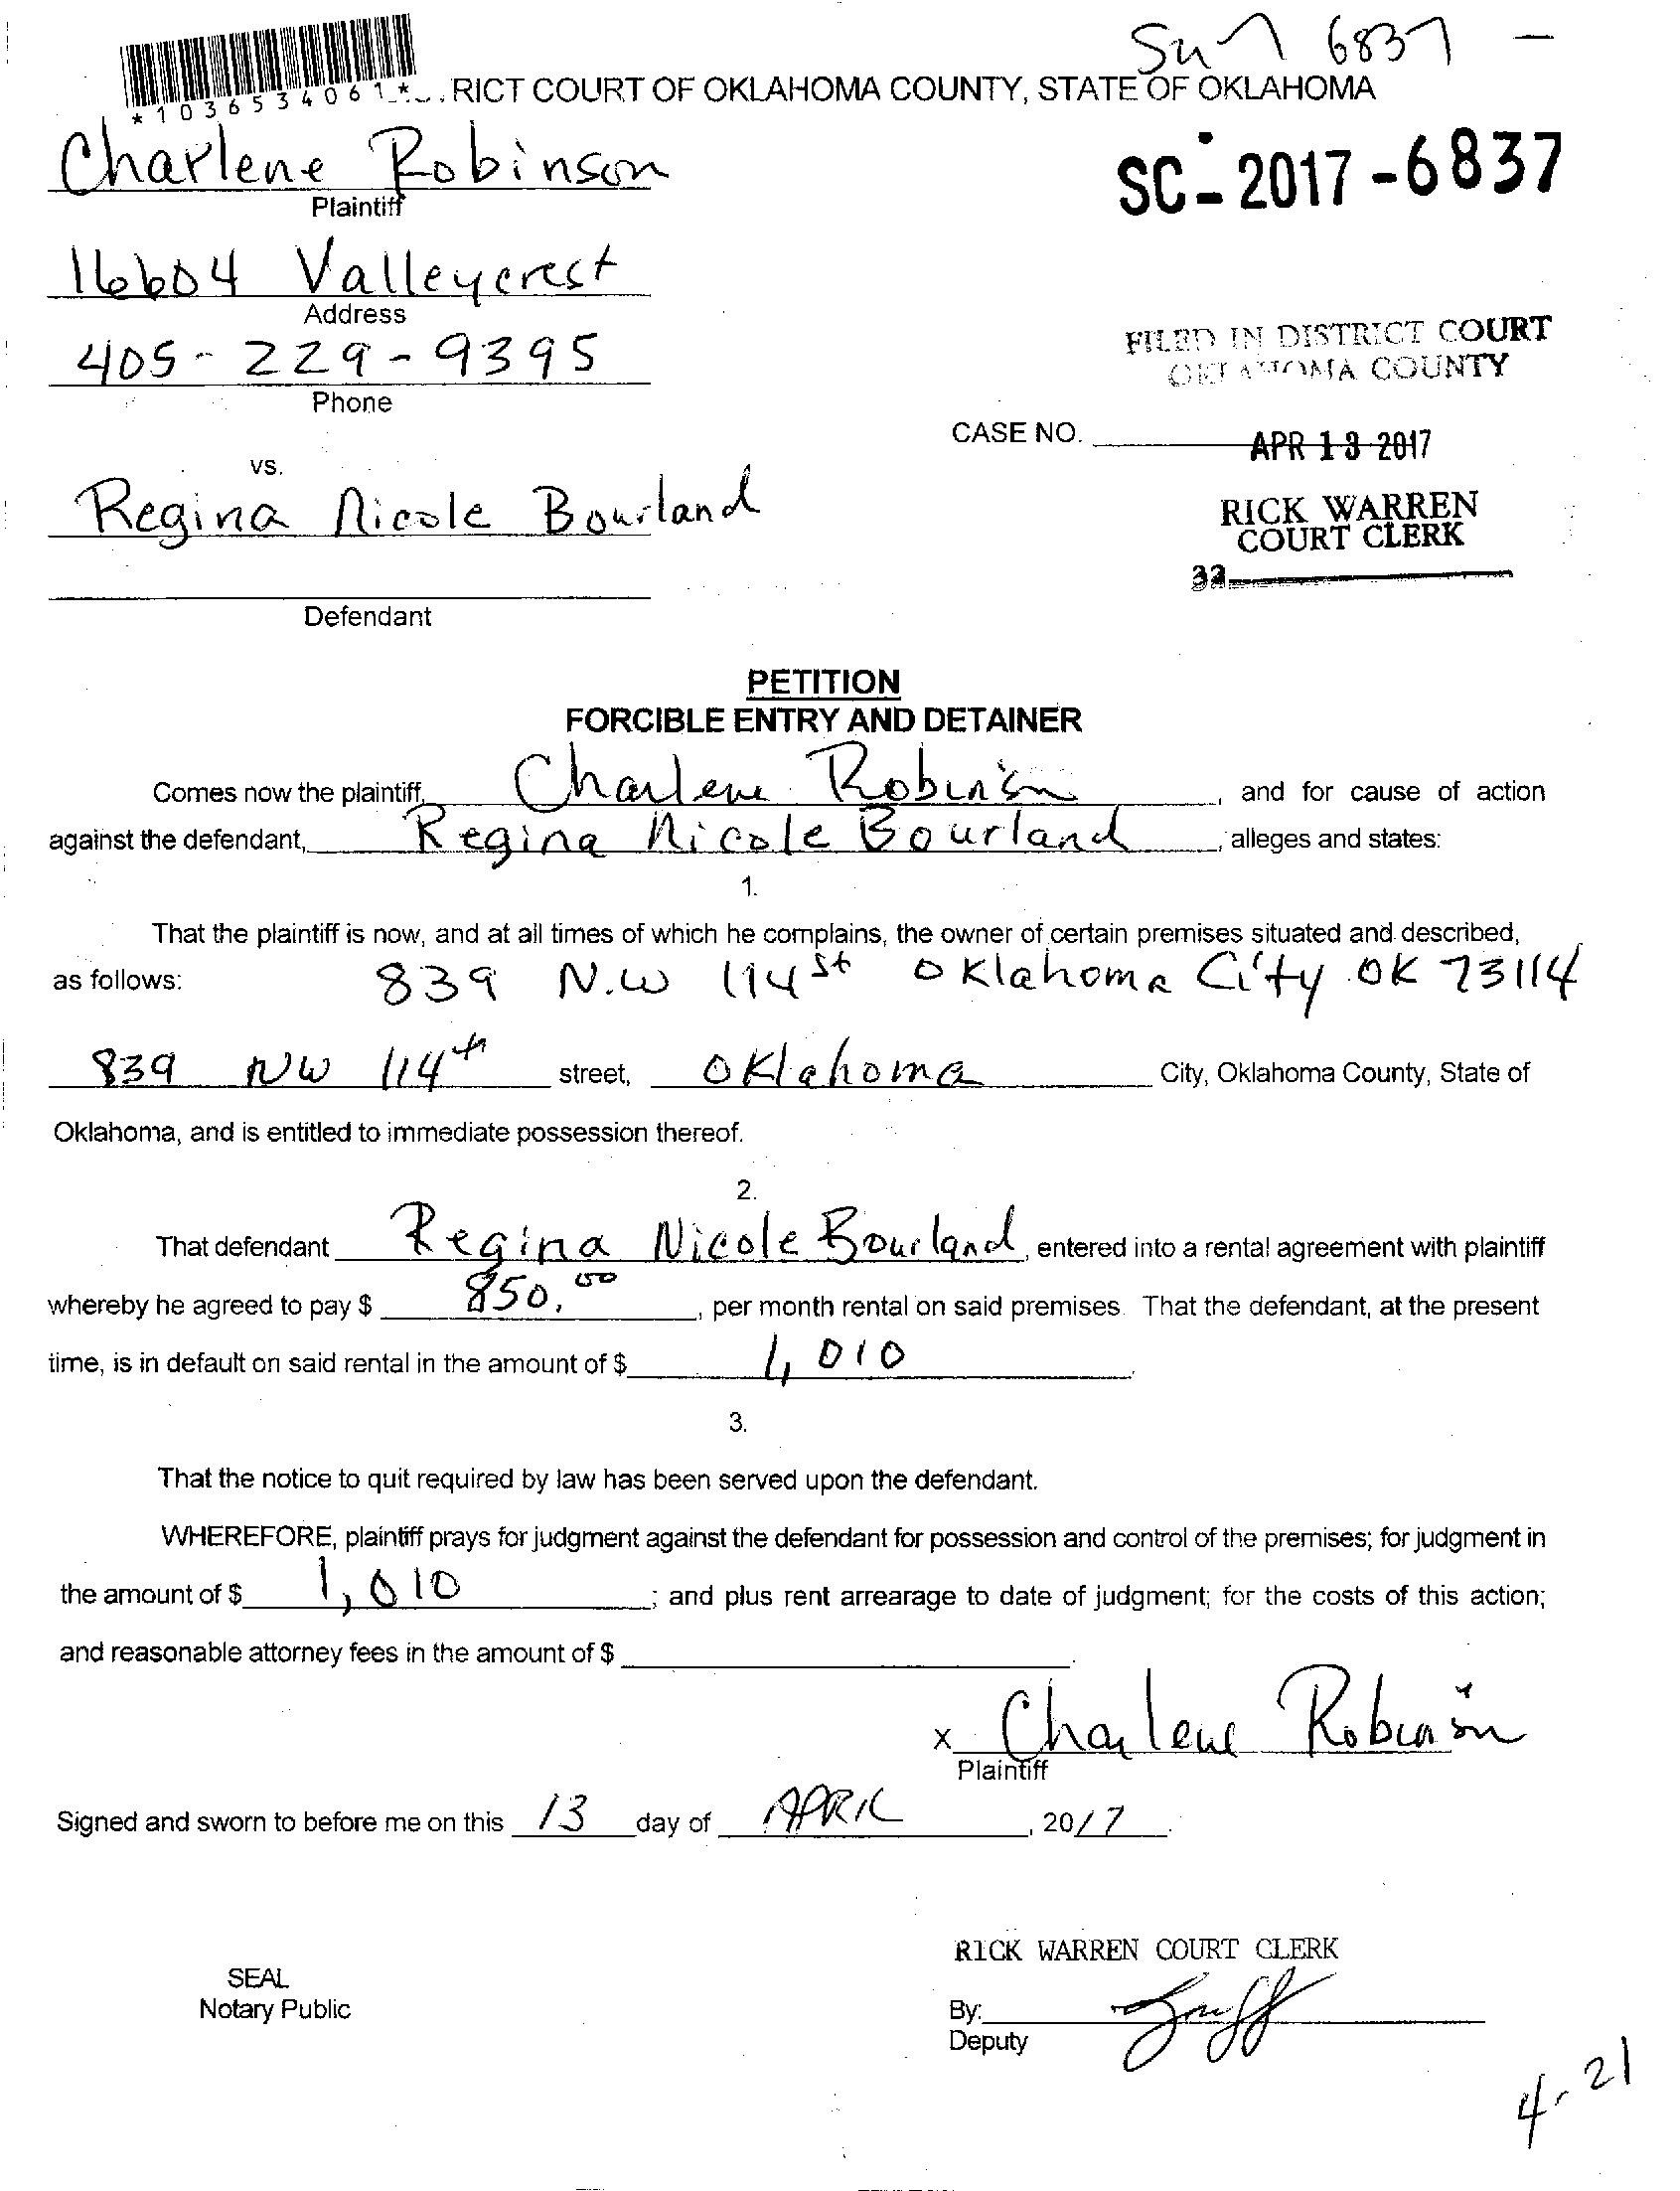 6837 -
*1036534061*
RICT COURT OF OKLAHOMA COUNTY, STATE OF OKLAHOMA
Charlene Robinson
Plaintiff
SC-2017-6837
16604 Valleycrest
Address
405-229-9395
Phone
FILED IN DISTRICT COURT
OKLAHOMA COUNTY
CASE NO.
APR 13 2017
vs.
Regina Nicole Bourland
RICK WARREN
COURT CLERK
32
Defendant
PETITION
FORCIBLE ENTRY AND DETAINER
Comes now the plaintiff, Charlene Robinson, and for cause of action
against the defendant, Regina Nicole Bourland, alleges and states:
1.
That the plaintiff is now, and at all times of which he complains, the owner of certain premises situated and described,
as follows: 839 N.W 114 st Oklahoma City OK 73114
839 NW 114th street, Oklahoma City, Oklahoma County, State of
Oklahoma, and is entitled to immediate possession thereof.
2.
That defendant Regina Nicole Bourland, entered into a rental agreement with plaintiff
whereby he agreed to pay $ 850.00, per month rental on said premises. That the defendant, at the present
time, is in default on said rental in the amount of $ 1,010.
3.
That the notice to quit required by law has been served upon the defendant.
WHEREFORE, plaintiff prays for judgment against the defendant for possession and control of the premises; for judgment in
the amount of $ 1,010; and plus rent arrearage to date of judgment; for the costs of this action;
and reasonable attorney fees in the amount of $ .
x Charlene Robinson
Plaintiff
Signed and sworn to before me on this 13 day of APRIL, 2017.
RICK WARREN COURT CLERK
SEAL
Notary Public
By:
Deputy
4-21